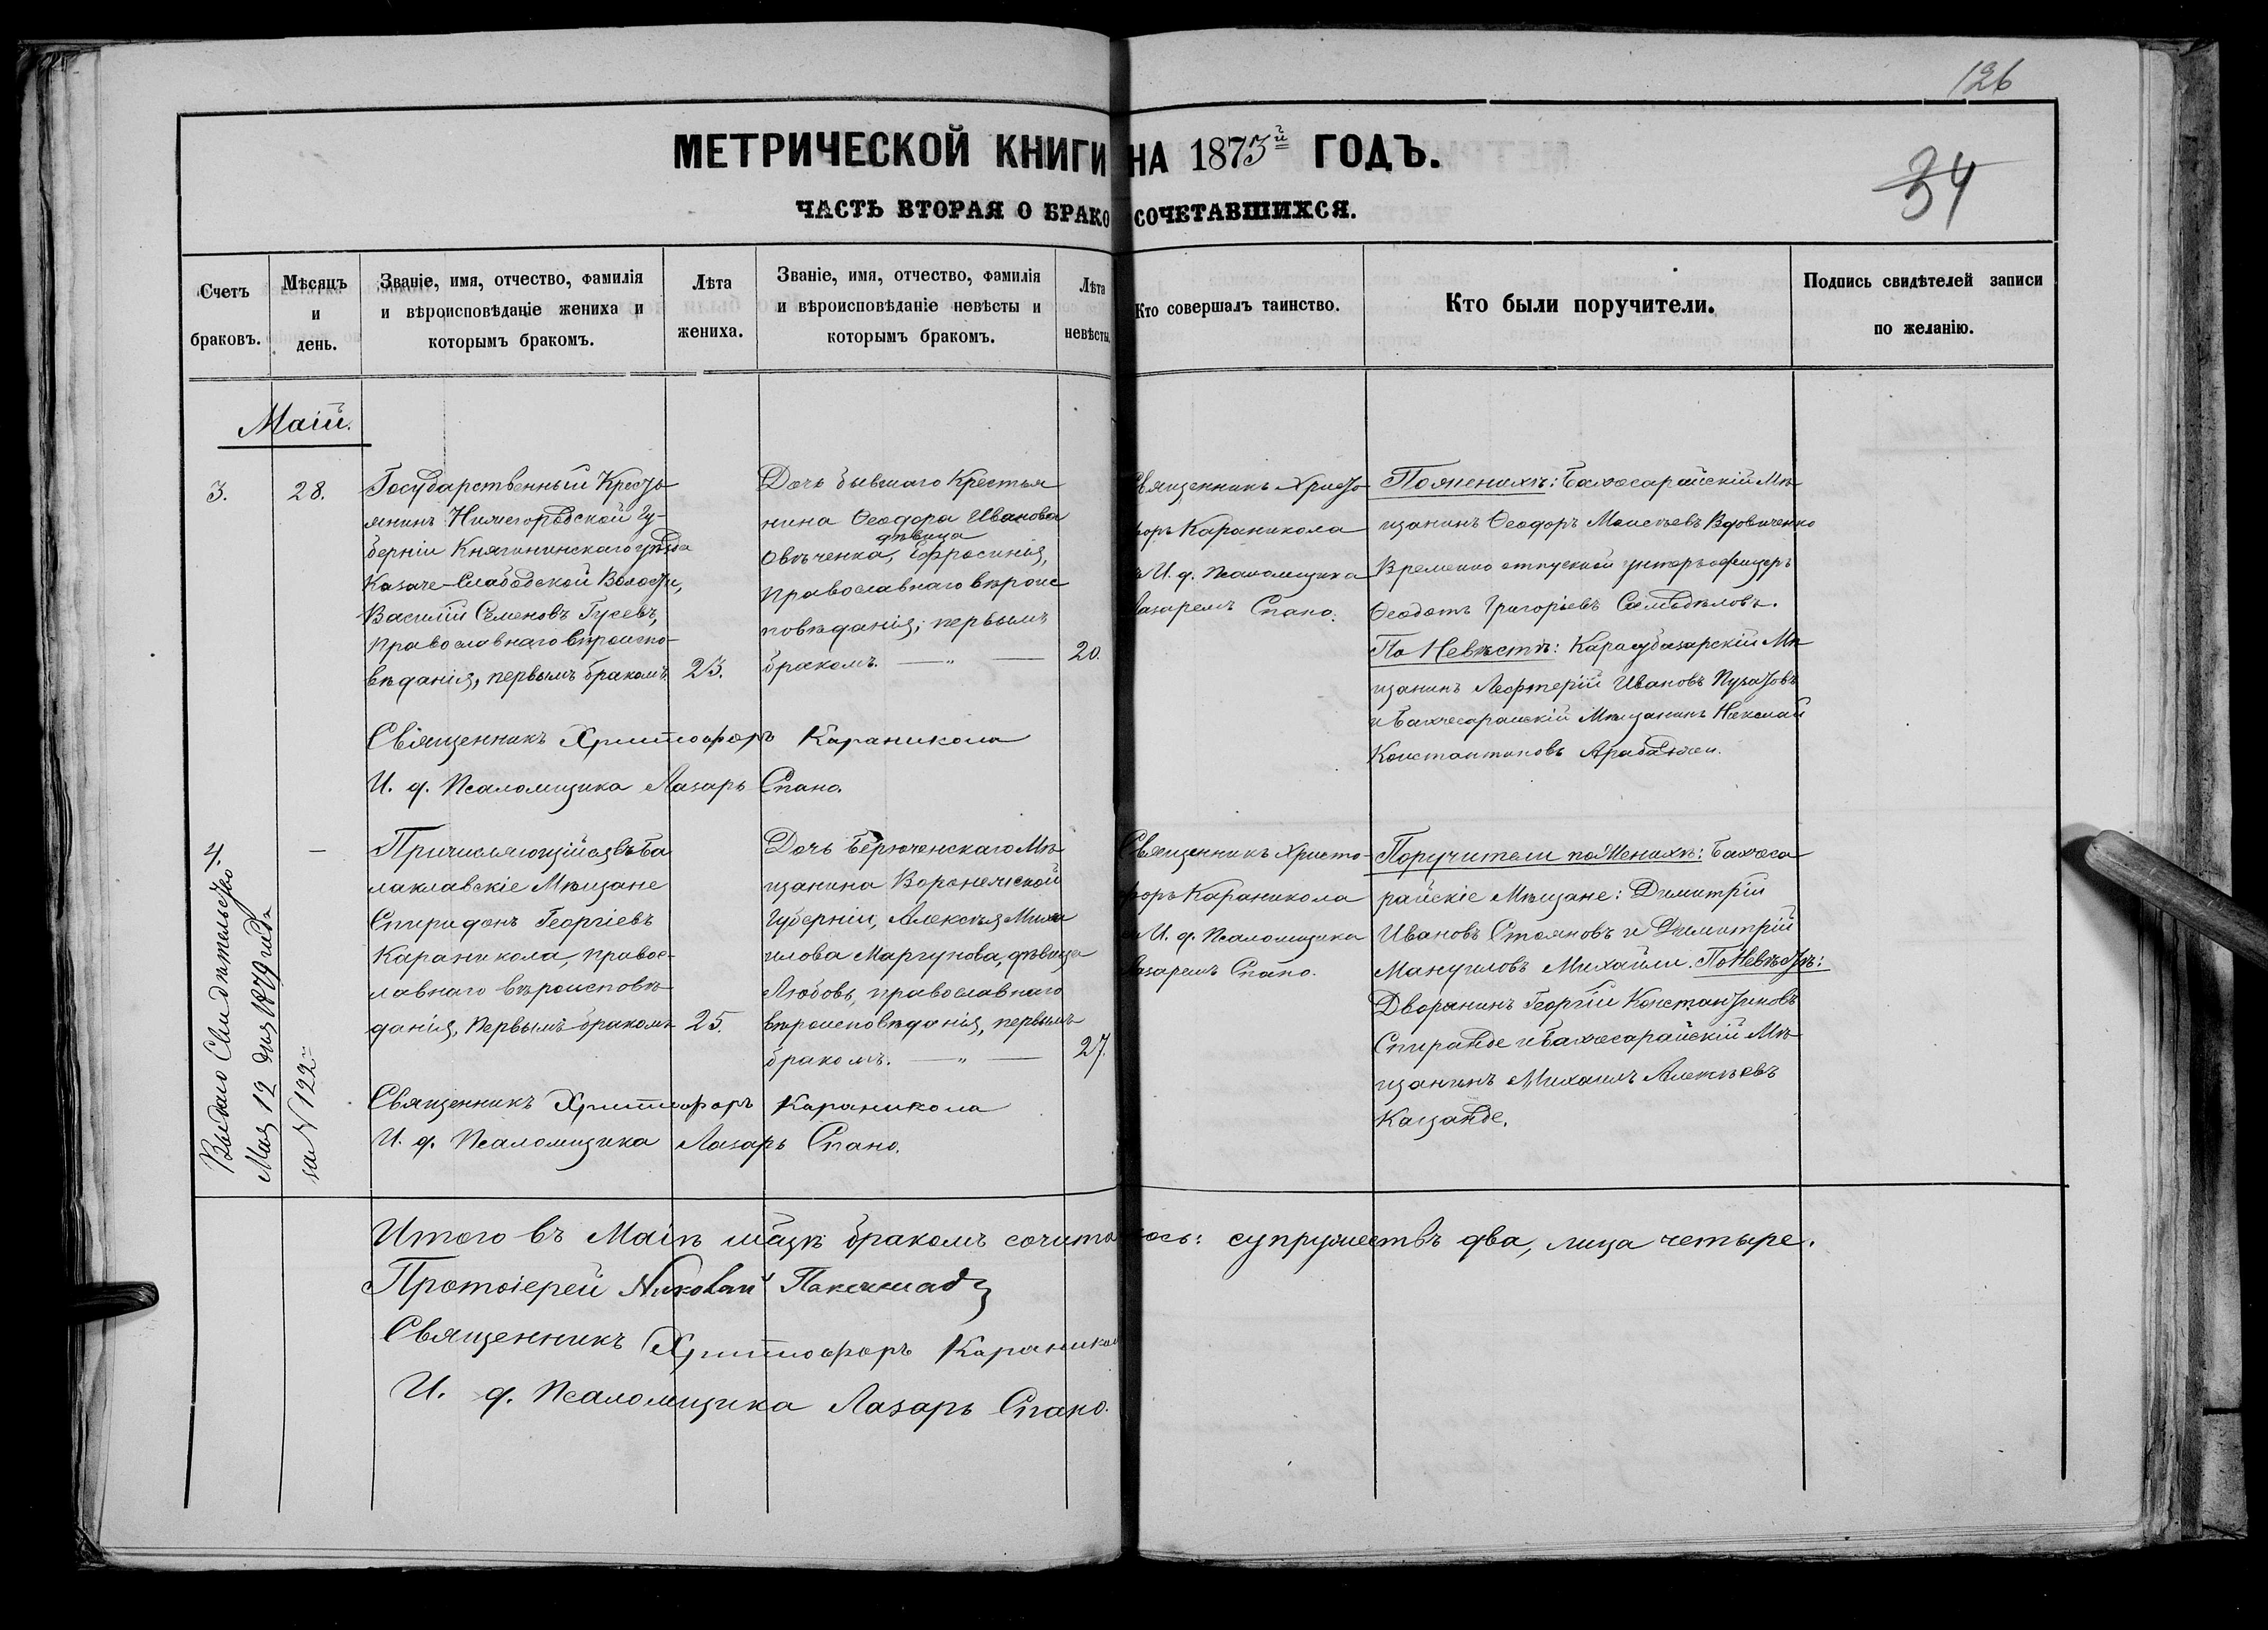 126
МЕТРИЧЕСКОЙ КНИГИ НА 1875й ГОДЪ.
34
ЧАСТЬ ВТОРАЯ О БРАКОСОЧЕТАВШИХСЯ.
Счетъ
браковъ.
Мѣсяцъ
и
день.
Званіе, имя, отчество, фамилія
и вѣроисповѣданіе жениха и
которымъ бракомъ.
Лѣта
жениха.
Званіе, имя, отчество, фамилія
и вѣроисповѣданіе невѣсты и
которымъ бракомъ.
Лѣта
невѣсты.
Кто совершалъ таинство.
Кто были поручители.
Подпись свидѣтелей записи
по желанію.
Маій.
3.
28.
Государственный Кресть
янинъ Нижегородской Гу-
берніи Княгининскаго уѣзда
Казаче-Слабодской Волости,
Василій Семеновъ Гусевъ,
православнаго вѣроиспо-
вѣданія, первымъ бракомъ
23.
Дочь бывшаго Крестья
нина Ѳеодора Иванова
дѣвица
Овѣченка, Ефросинія,
православнаго вѣроис
повѣданія; первымъ
бракомъ. — „ —
20.
Священникъ Христо
форъ Караникола
и И. д. Псаломщика
Лазаремъ Спано.
По женихѣ: Бахчесарайскій Мѣ
щанинъ Ѳеодоръ Моисѣевъ Вдовиченко
Временно отпускной унтеръ офицеръ
Ѳеодотъ Григорьевъ Самодѣловъ.
По Невѣстѣ: Карасубазарскій Мѣ
щанинъ Лефтерій Ивановъ
и Бахчесарайскій Мѣщанинъ Николай
Константиновъ Арабаджи.
Священникъ Христофоръ Караникола
И. д. Псаломщика Лазарь Спано.
4.
—
Выдано Свидѣтельство
Мая 12 дня 1879 года
за N 122м
Причисляющійся въ Ба
лаклавскіе Мѣщане
Спиридонъ Георгіевъ
Караникола, правос-
лавнаго вѣроисповѣ-
данія, первымъ бракомъ
25.
Дочь Берюченскаго Мѣ-
щанина Воронежской
Губерніи, Алексѣя Миха
илова Маргунова, дѣвица
Любовь, православнаго
вѣроисповѣданія, первымъ
бракомъ. — „ —
27.
Священникъ Христо-
форъ Караникола
и И. д. Псаломщика
Лазаремъ Спано.
Поручители по Женихѣ: Бахчеса
райскіе Мѣщане: Димитрій
Ивановъ Стояновъ и Димитрій
Мануиловъ Михайли. По Невѣстѣ:
Дворянинъ Георгій Константиновъ
Спиранде и Бахчесарайскій Мѣ-
щанинъ Михаилъ Алексѣевъ
Кацанде.
Священникъ Христофоръ Караникола
И. д. Псаломщика Лазарь Спано.
Итого въ Маіѣ мѣсяцѣ бракомъ сочиталось: супружествъ два, лица четыре.
Протоіерей Николай
Священникъ Христофоръ Караникола
И. д. Псаломщика Лазарь Спано.